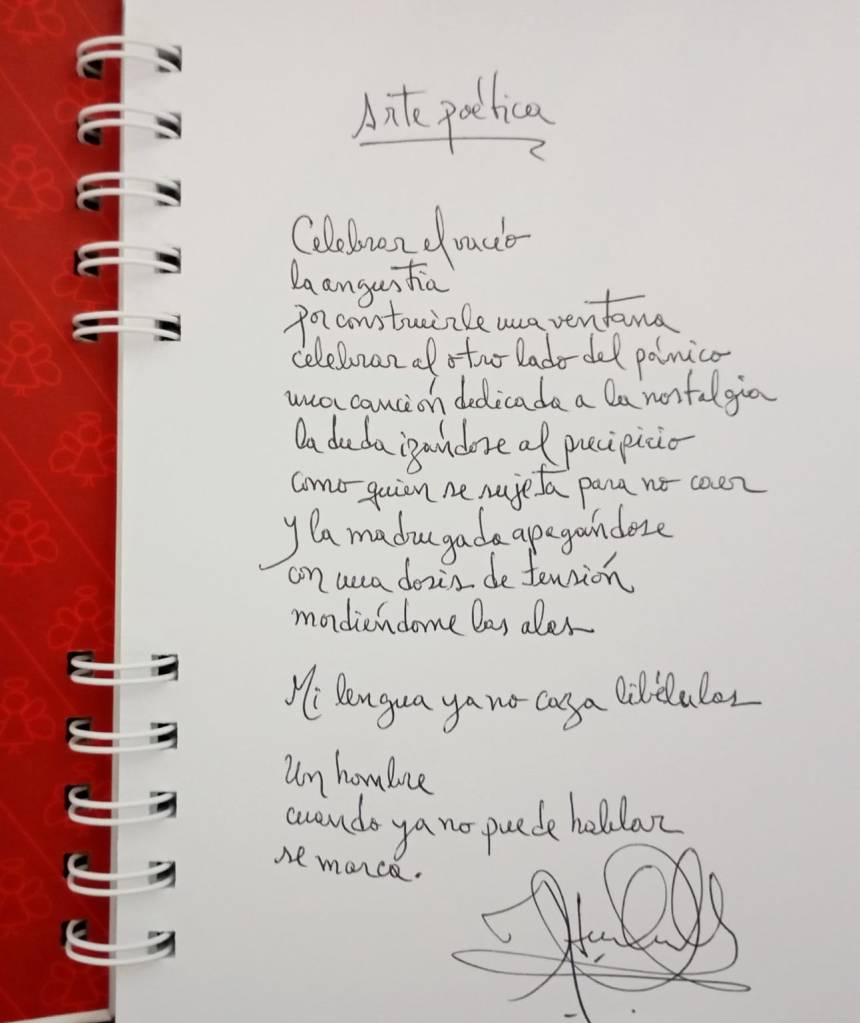 Arte poética
Celebrar el vacío
la angustia
por construirle una ventana
celebrar al otro lado del pánico
una canción dedicada a la nostalgia
la duda izándose al precipicio
como quien se sujeta para no caer
y la madrugada apagándose
con una dosis de tensión
mordiéndome las alas
Mi lengua ya no caza libélulas
Un hombre
cuando ya no puede hablar
se marca.